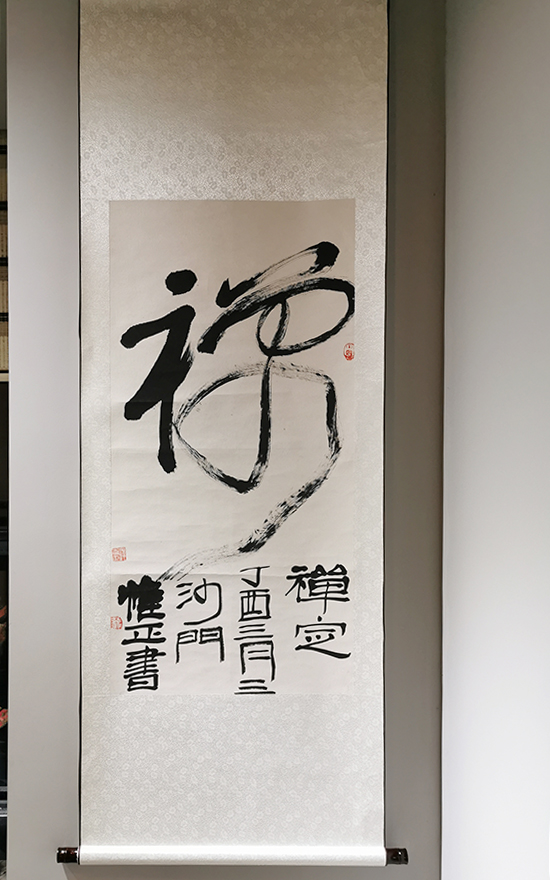 禅
禪定
丁酉三月三
沙門
惟正書